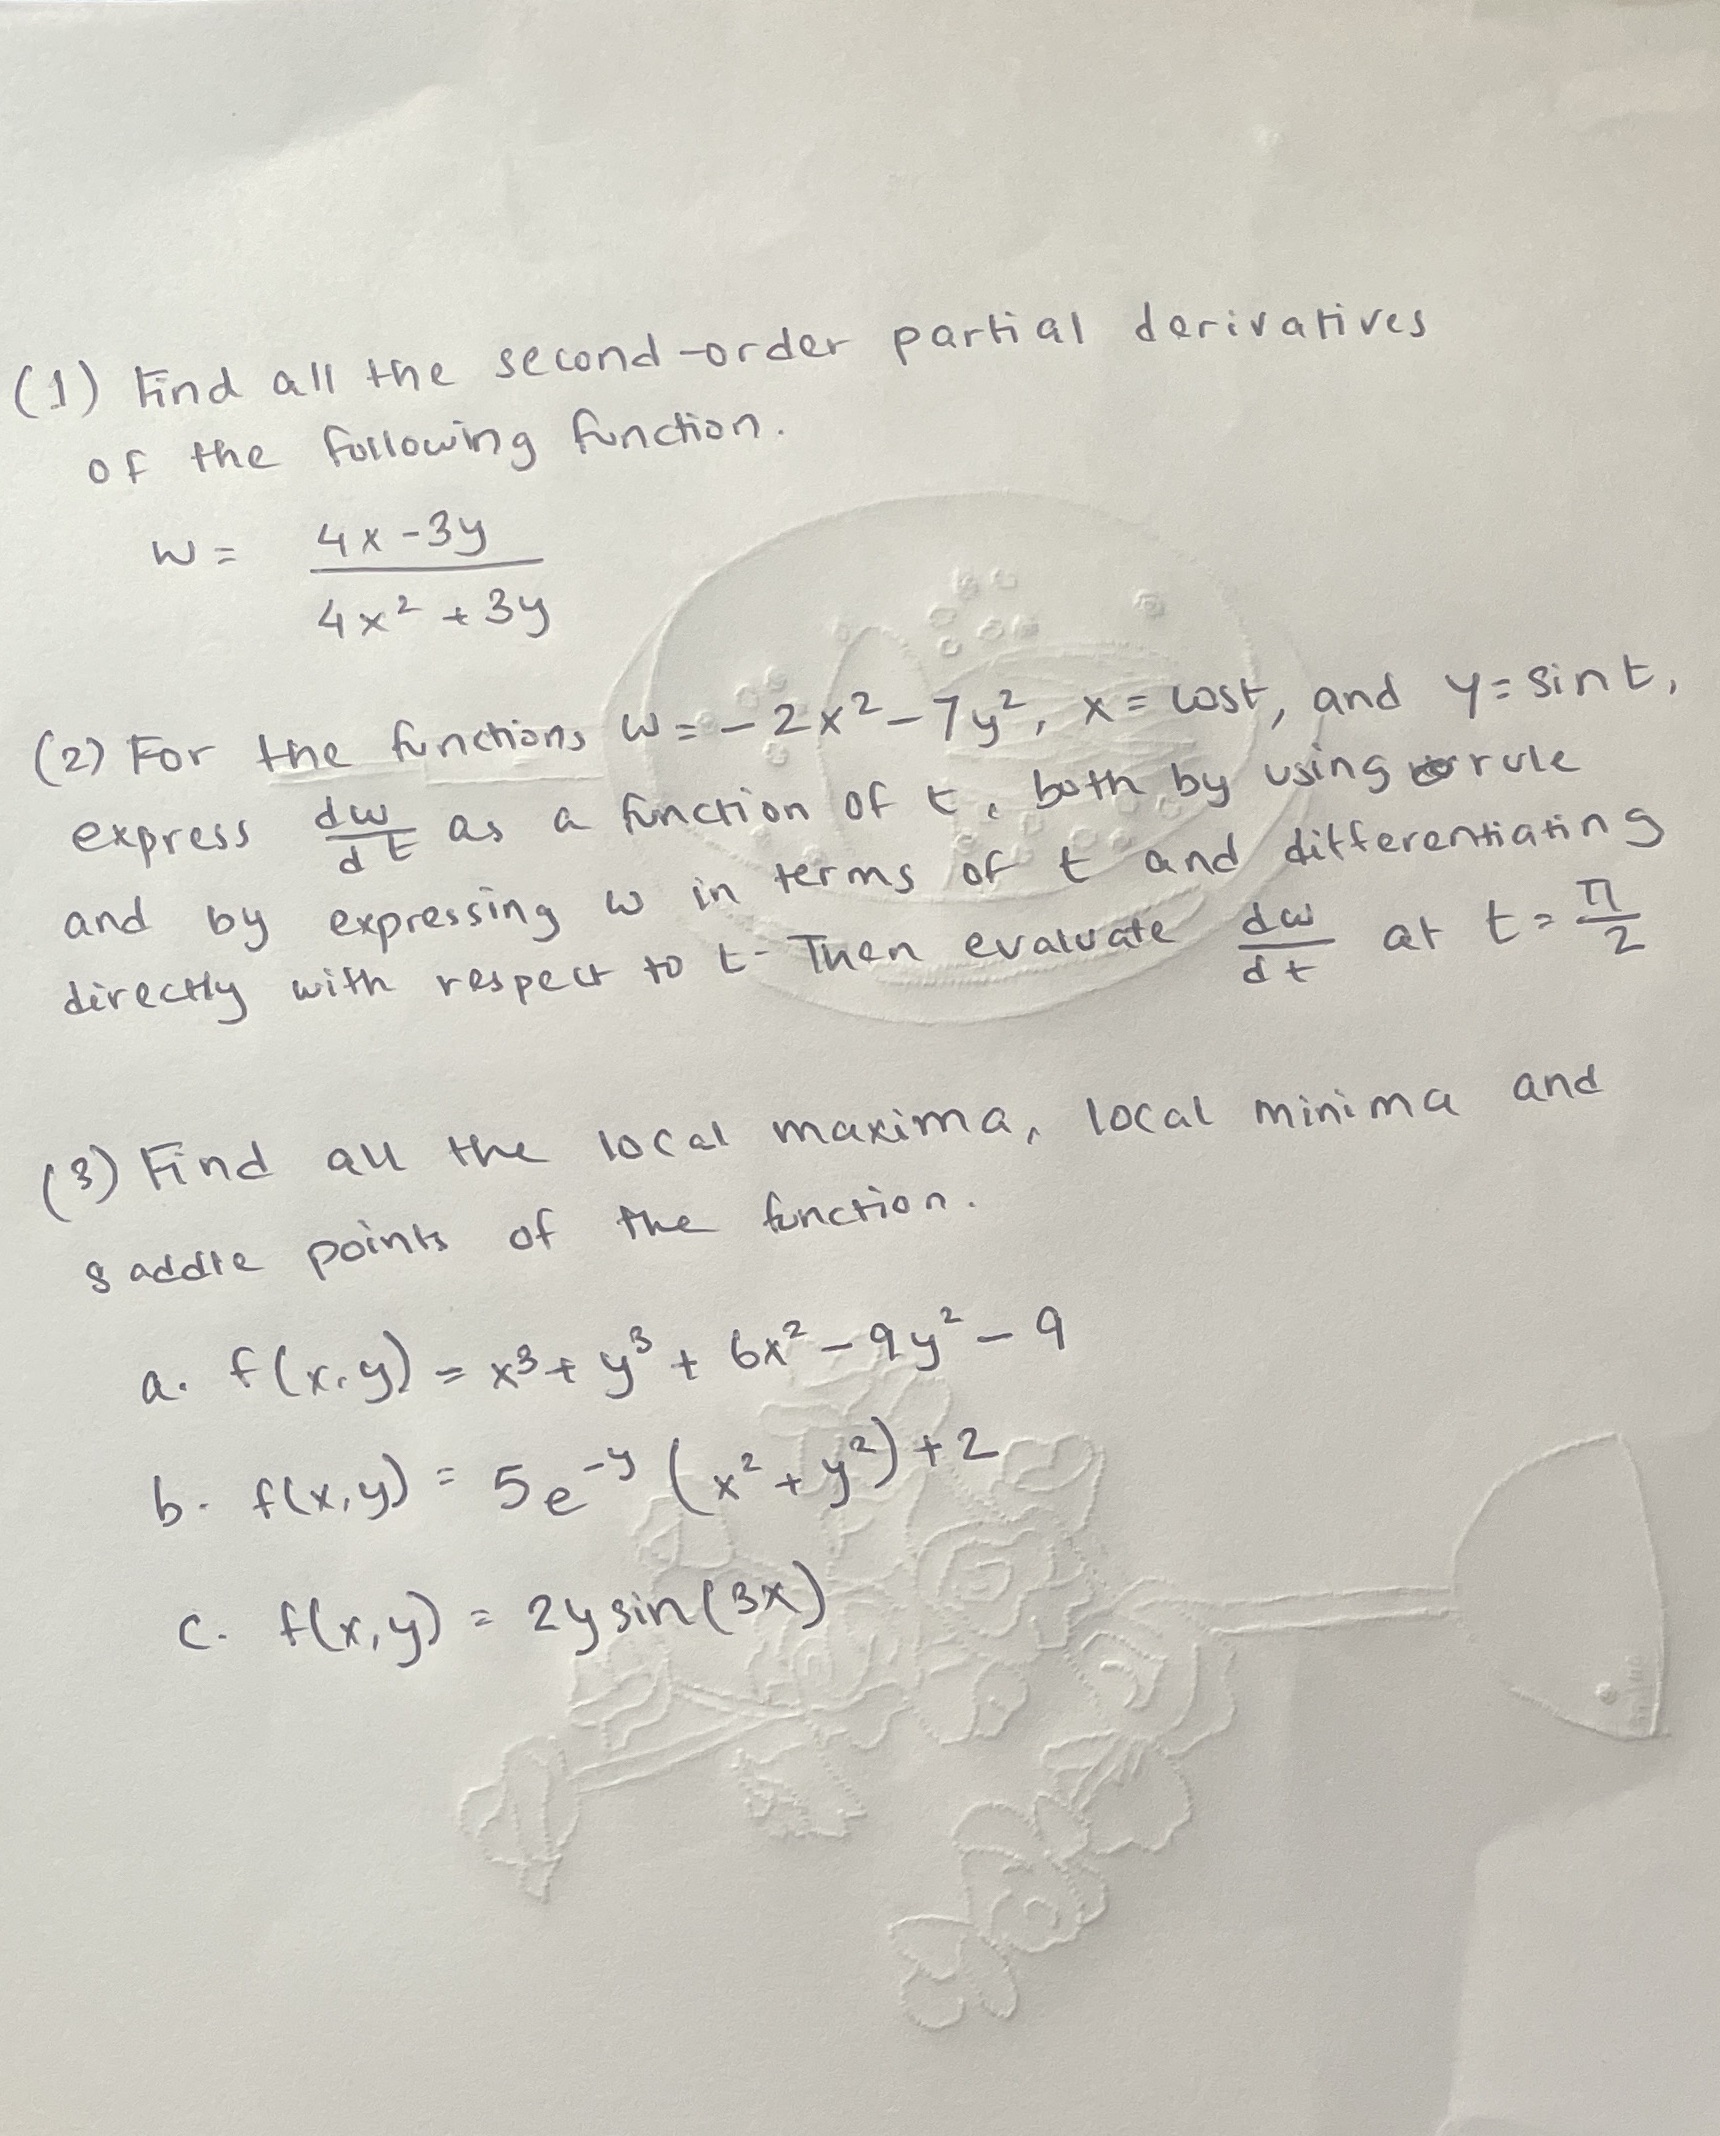 (1) Find all the second-order partial derivatives
of the following function.
w = \frac{4x-3y}{4x² + 3y}
(2) For the functions w = -2x² - 7y², x = cost, and y = sint,
express \frac{dw}{dt} as a function of t, both by using rule
and by expressing w in terms of t and differentiating
directly with respect to t. Then evaluate \frac{dw}{dt} at t = \frac{π}{2}
(3) Find all the local maxima, local minima and
saddle points of the function.
a. f(x,y) = x³ + y³ + 6x² - 9y² - 9
b. f(x,y) = 5e^{-y} (x² + y²) + 2
c. f(x,y) = 2y sin(3x)